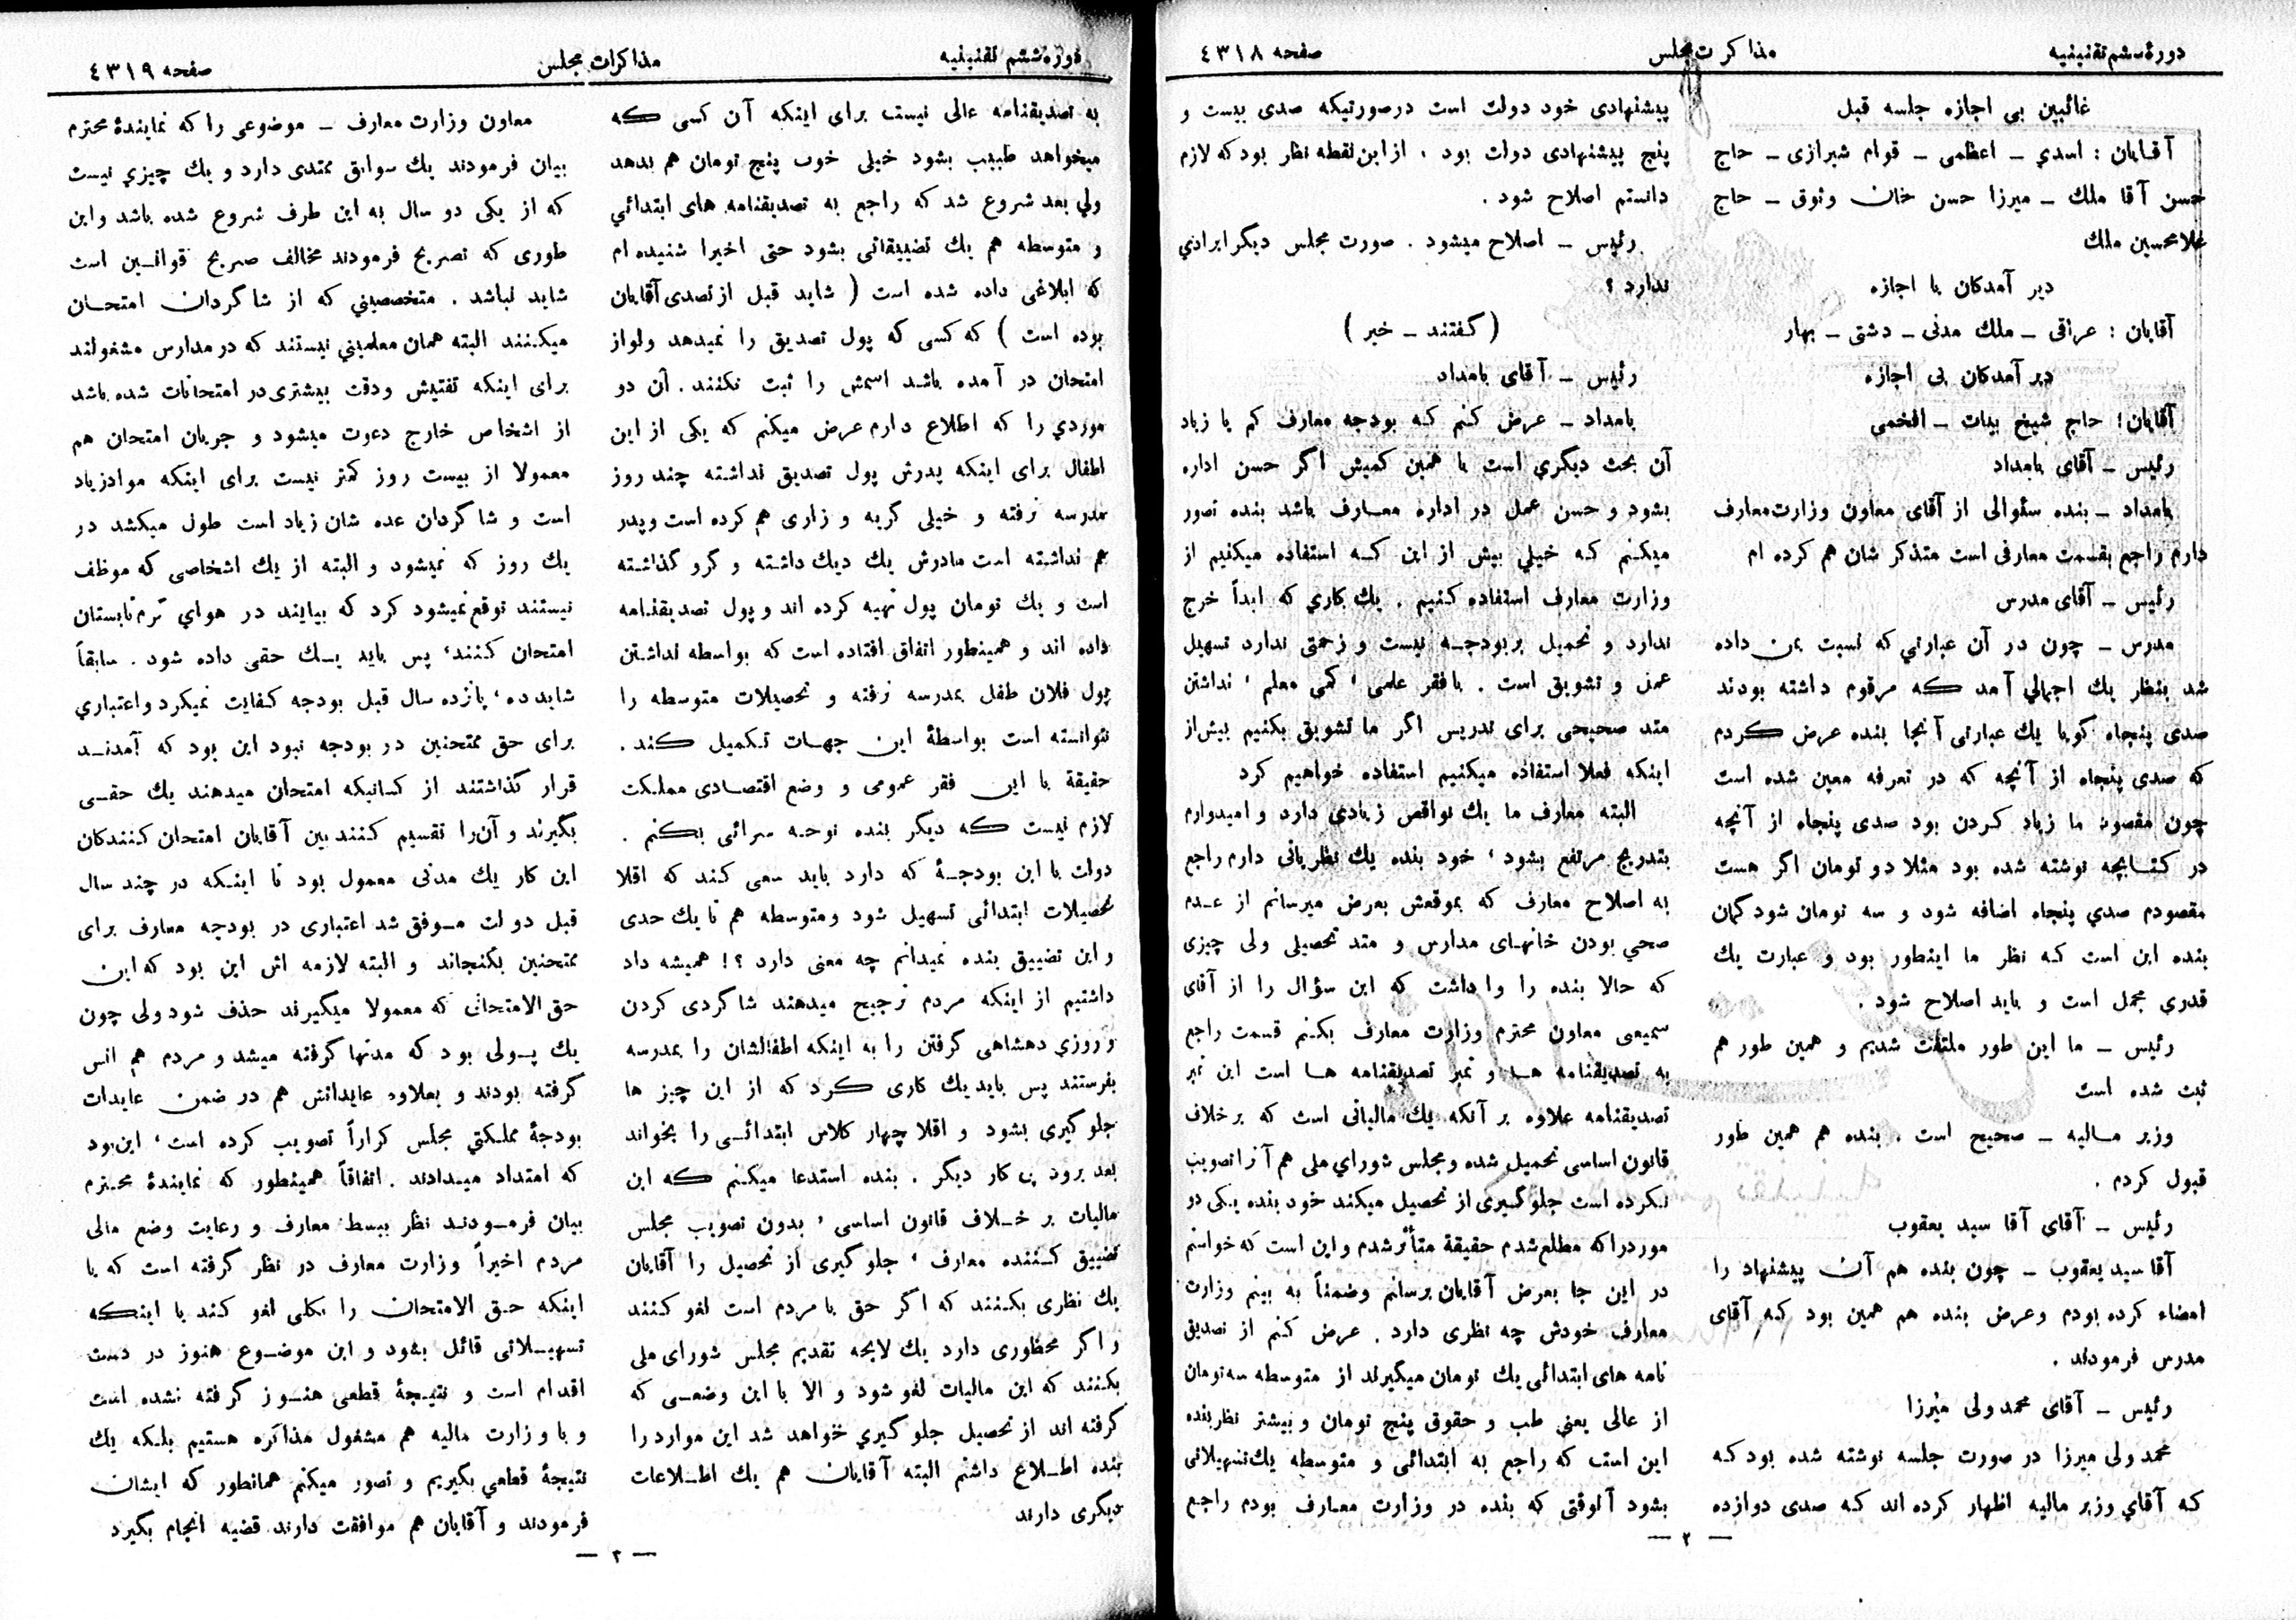 دورهٔ ششم تقنینیه
مذاکرت مجلس
صفحه ٤٣١٨
غائبین بی اجازه جلسه قبل
آقایان : اسدي ـ اعظمی ـ قوام شیرازی ـ حاج
حسن آقا ملك ـ میرزا حسن خان وثوق ـ حاج
غلامحسین ملك
دیر آمدکان با اجازه
آقایان : عراقی ـ ملك مدنی ـ دشتی ـ بهار
دیر آمدکان بی اجازه
آقایان : حاج شیخ بیات ـ افخمی
رئیس ـ آقای بامداد
بامداد ـ بنده سئوالی از آقای معاون وزارت معارف
دارم راجع بقسمت معارفی است متذکر شان هم کرده ام
رئیس ـ آقای مدرس
مدرس ـ چون در آن عبارتي که نسبت بمن داده
شد بنظر یك اجمالي آمد که مرقوم داشته بودند
صدی پنجاه گویا یك عبارتی آنجا بنده عرض کردم
که صدی پنجاه از آنچه که در تعرفه معین شده است
چون مقصود ما زیاد کردن بود صدی پنجاه از آنچه
در کتابچه نوشته شده بود مثلا دو تومان اگر هست
مقصودم صدي پنجاه اضافه شود و سه تومان شود گمان
بنده این است که نظر ما اینطور بود و عبارت یك
قدري مجمل است و باید اصلاح شود .
رئیس ـ ما این طور ملتفت شدیم و همین طور هم
ثبت شده است
وزیر مالیه ـ صحیح است . بنده هم همین طور
قبول کردم .
رئیس ـ آقای آقا سید یعقوب
آقا سید یعقوب ـ چون بنده هم آن پیشنهاد را
امضاء کرده بودم وعرض بنده هم همین بود که آقای
مدرس فرمودند .
رئیس ـ آقای محمد ولی میرزا
محمد ولی میرزا در صورت جلسه نوشته شده بود که
که آقاي وزیر مالیه اظهار کرده اند که صدی دوازده
پیشنهادی خود دولت است درصورتیکه صدی بیست و
پنج پیشنهادی دولت بود . ازاین نقطه نظر بود که لازم
دانستم اصلاح شود .
رئیس ـ اصلاح میشود . صورت مجلس دیگر ایرادي
ندارد ؟
( گفتند ـ خیر )
رئیس ـ آقای بامداد
بامداد ـ عرض کنم که بودجه معارف کم یا زیاد
آن بحث دیگري است با همین کمیش اگر حسن اداره
بشود و حسن عمل در اداره معارف باشد بنده تصور
میکنم که خیلي بیش از این که استفاده میکنیم از
وزارت معارف استفاده کنیم . یك کاري که ابداً خرج
ندارد و تحمیل بربودجه نیست و زحمتی ندارد تسهیل
عمل و تشویق است . بافقر علمی ، کمی معلم ، نداشتن
متد صحیحی برای تدریس اگر ما تشویق بکنیم بیش از
اینکه فعلا استفاده میکنیم استفاده خواهیم کرد
البته معارف ما یك نواقص زیادي دارد و امیدوارم
بتدریج مرتفع بشود ، خود بنده یك نظریاتی دارم راجع
به اصلاح معارف که بموقعش بعرض میرسانم از عدم
صحي بودن خانهای مدارس و متد تحصیلی ولی چیزی
که حالا بنده را وا داشت که این سؤال را از آقای
سمیعی معاون محترم وزارت معارف بکنم قسمت راجع
به تصدیقنامه ها و تمبر تصدیقنامه ها است این تمبر
تصدیقنامه علاوه بر آنکه یك مالیاتی است که بر خلاف
قانون اساسی تحمیل شده و مجلس شوراي ملی هم آنرا تصویب
نکرده است جلوگیری از تحصیل میکند خود بنده یکی دو
مورد را که مطلع شدم حقیقة متأثر شدم و این است که خواستم
در این جا بعرض آقایان برسانم وضمناً به بینم وزارت
معارف خودش چه نظری دارد . عرض کنم از تصدیق
نامه های ابتدائی یك تومان میگیرند از متوسطه سه تومان
از عالی یعنی طب و حقوق پنج تومان و بیشتر نظر بنده
این است که راجع به ابتدائی و متوسطه یك تسهیلاتی
بشود آنوقتی که بنده در وزارت معارف بودم راجع
— ۲ —
دوره ششم تقنینیه
مذاکرات مجلس
صفحه ٤٣١٩
به تصدیقنامه عالی نیست برای اینکه آن کسی که
میخواهد طبیب بشود خیلی خوب پنج تومان هم بدهد
ولي بعد شروع شد که راجع به تصدیقنامه های ابتدائي
و متوسطه هم یك تضییقاتی بشود حتی اخیرا شنیده ام
که ابلاغی داده شده است ( شاید قبل از تصدی آقایان
بوده است ) که کسی که پول تصدیق را نمیدهد ولو از
امتحان در آمده باشد اسمش را ثبت نکنند . آن دو
موردي را که اطلاع دارم عرض میکنم که یکی از این
اطفال برای اینکه پدرش پول تصدیق نداشته چند روز
بمدرسه نرفته و خیلی گریه و زاری هم کرده است و پدر
هم نداشته است مادرش یك دیك داشته و گرو گذاشته
است و یك تومان پول تهیه کرده اند و پول تصدیقنامه
داده اند و همینطور اتفاق افتاده است که بواسطه نداشتن
پول فلان طفل بمدرسه نرفته و تحصیلات متوسطه را
نتوانسته است بواسطهٔ این جهات تکمیل کند .
حقیقة با این فقر عمومی و وضع اقتصادی مملکت
لازم نیست که دیگر بنده نوحه سرائی بکنم .
دولت با این بودجهٔ که دارد باید سعی کند که اقلا
تحصیلات ابتدائی تسهیل شود ومتوسطه هم تا یك حدی
و این تضییق بنده نمیدانم چه معنی دارد ؟! همیشه داد
داشتیم از اینکه مردم ترجیح میدهند شاگردی کردن
و روزي دهشاهی گرفتن را به اینکه اطفالشان را بمدرسه
بفرستند پس باید یك کاری کرد که از این چیز ها
جلوگیری بشود و اقلا چهار کلاس ابتدائی را بخواند
بعد برود پی کار دیگر . بنده استدعا میکنم که این
مالیات بر خلاف قانون اساسی ، بدون تصویب مجلس
تضییق کننده معارف ، جلوگیری از تحصیل را آقایان
یك نظری بکنند که اگر حق با مردم است لغو کنند
و اگر محظوری دارد یك لایحه تقدیم مجلس شورای ملی
بکنند که این مالیات لغو شود و الا با این وضعی که
گرفته اند از تحصیل جلوگیري خواهد شد این موارد را
بنده اطلاع داشتم البته آقایان هم یك اطلاعات
دیگری دارند
معاون وزارت معارف ـ موضوعی را که نمایندهٔ محترم
بیان فرمودند یك سوابق ممتدی دارد و یك چیزي نیست
که از یکی دو سال به این طرف شروع شده باشد واین
طوری که تصریح فرمودند مخالف صریح قوانین است
شاید نباشد . متخصصیني که از شاگردان امتحان
میکنند البته همان معلمیني نیستند که در مدارس مشغولند
برای اینکه تفتیش ودقت بیشتری در امتحانات شده باشد
از اشخاص خارج دعوت میشود و جریان امتحان هم
معمولا از بیست روز کمتر نیست برای اینکه مواد زیاد
است و شاگردان عده شان زیاد است طول میکشد در
یك روز که نمیشود و البته از یك اشخاصی که موظف
نیستند توقع نمیشود کرد که بیایند در هواي گرم تابستان
امتحان کنند ، پس باید یك حقی داده شود . سابقاً
شاید ده ، پانزده سال قبل بودجه کفایت نمیکرد و اعتباري
برای حق ممتحنین در بودجه نبود این بود که آمدند
قرار گذاشتند از کسانیکه امتحان میدهند یك حقی
بگیرند و آن را تقسیم کنند بین آقایان امتحان کنندکان
این کار یك مدتی معمول بود تا اینکه در چند سال
قبل دولت موفق شد اعتباری در بودجه معارف برای
ممتحنین بگنجاند و البته لازمه اش این بود که این
حق الامتحانی که معمولا میگیرند حذف شود ولی چون
یك پولی بود که مدتها گرفته میشد و مردم هم انس
گرفته بودند و بعلاوه عایداتش هم در ضمن عایدات
بودجهٔ مملکتي مجلس کراراً تصویب کرده است ، این بود
که امتداد میدادند . اتفاقاً همینطور که نمایندهٔ محترم
بیان فرمودند نظر ببسط معارف و رعایت وضع مالی
مردم اخیراً وزارت معارف در نظر گرفته است که یا
اینکه حق الامتحان را بکلی لغو کند یا اینکه
تسهیلاتی قائل بشود و این موضوع هنوز در دست
اقدام است و نتیجهٔ قطعی هنوز گرفته نشده است
و با وزارت مالیه هم مشغول مذاکره هستیم بلکه یك
نتیجهٔ قطعي بگیریم و تصور میکنم همانطور که ایشان
فرمودند و آقایان هم موافقت دارند قضیه انجام بگیرد
— ۳ —